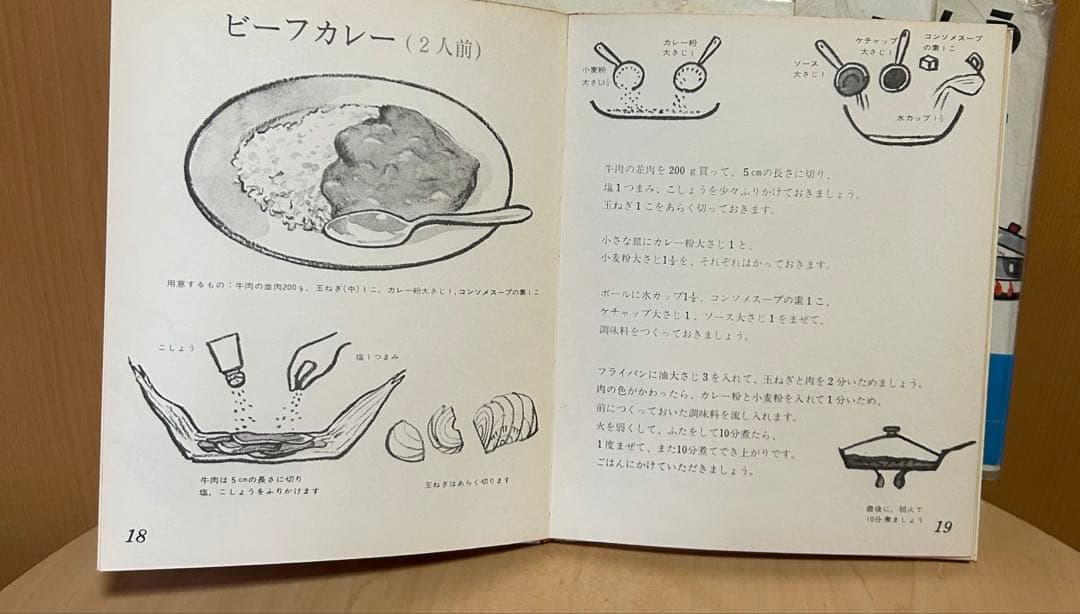 ビーフカレー(2人前)
用意するもの;牛肉の並肉200g、玉ねぎ(中)1こ、カレー粉大さじ1,コンソメスープの素1こ
こしょう
塩1つまみ
牛肉は5cmの長さに切り
塩,こしょうをふりかけます
玉ねぎはあらく切ります
18
小麦粉
大さじ1½
カレー粉
大さじ1
ソース
大さじ1
ケチャップ
大さじ1
コンソメスープ
の素1こ
水カップ1½
牛肉の並肉を200g買って、5cmの長さに切り、
塩1つまみ、こしょうを少々ふりかけておきましょう。
玉ねぎ1こをあらく切っておきます。
小さな皿にカレー粉大さじ1と、
小麦粉大さじ1½を、それぞれはかっておきます。
ボールに水カップ1½、コンソメスープの素1こ、
ケチャップ大さじ1、ソース大さじ1をまぜて、
調味料をつくっておきましょう。
フライパンに油大さじ3を入れて、玉ねぎと肉を2分いためましょう。
肉の色がかわったら、カレー粉と小麦粉を入れて1分いため、
前につくっておいた調味料を流し入れます。
火を弱くして、ふたをして10分煮たら、
1度まぜて、また10分煮てでき上がりです。
ごはんにかけていただきましょう。
最後に、弱火で
10分煮ましょう
19